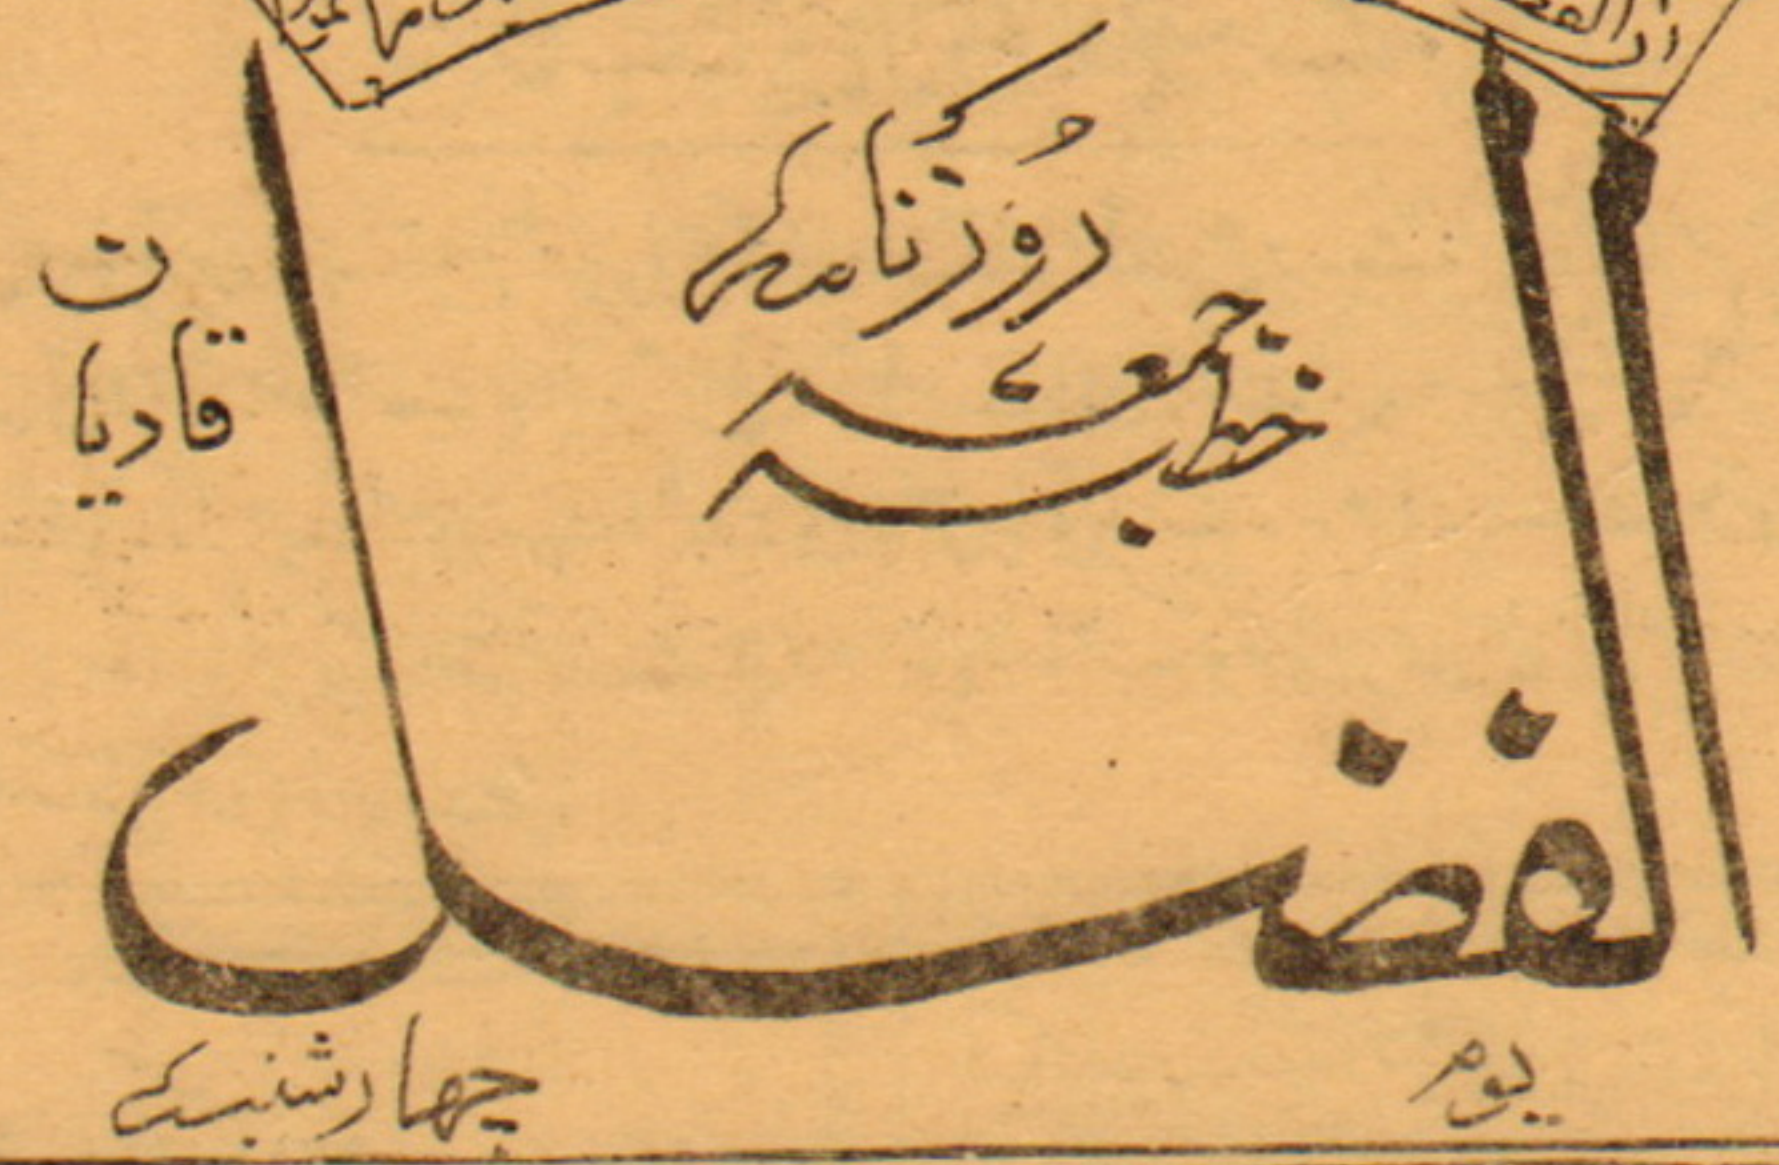 روزنامہ
خطبہ جمعہ
قادیان
الفضل
یوم چہارشنبہ